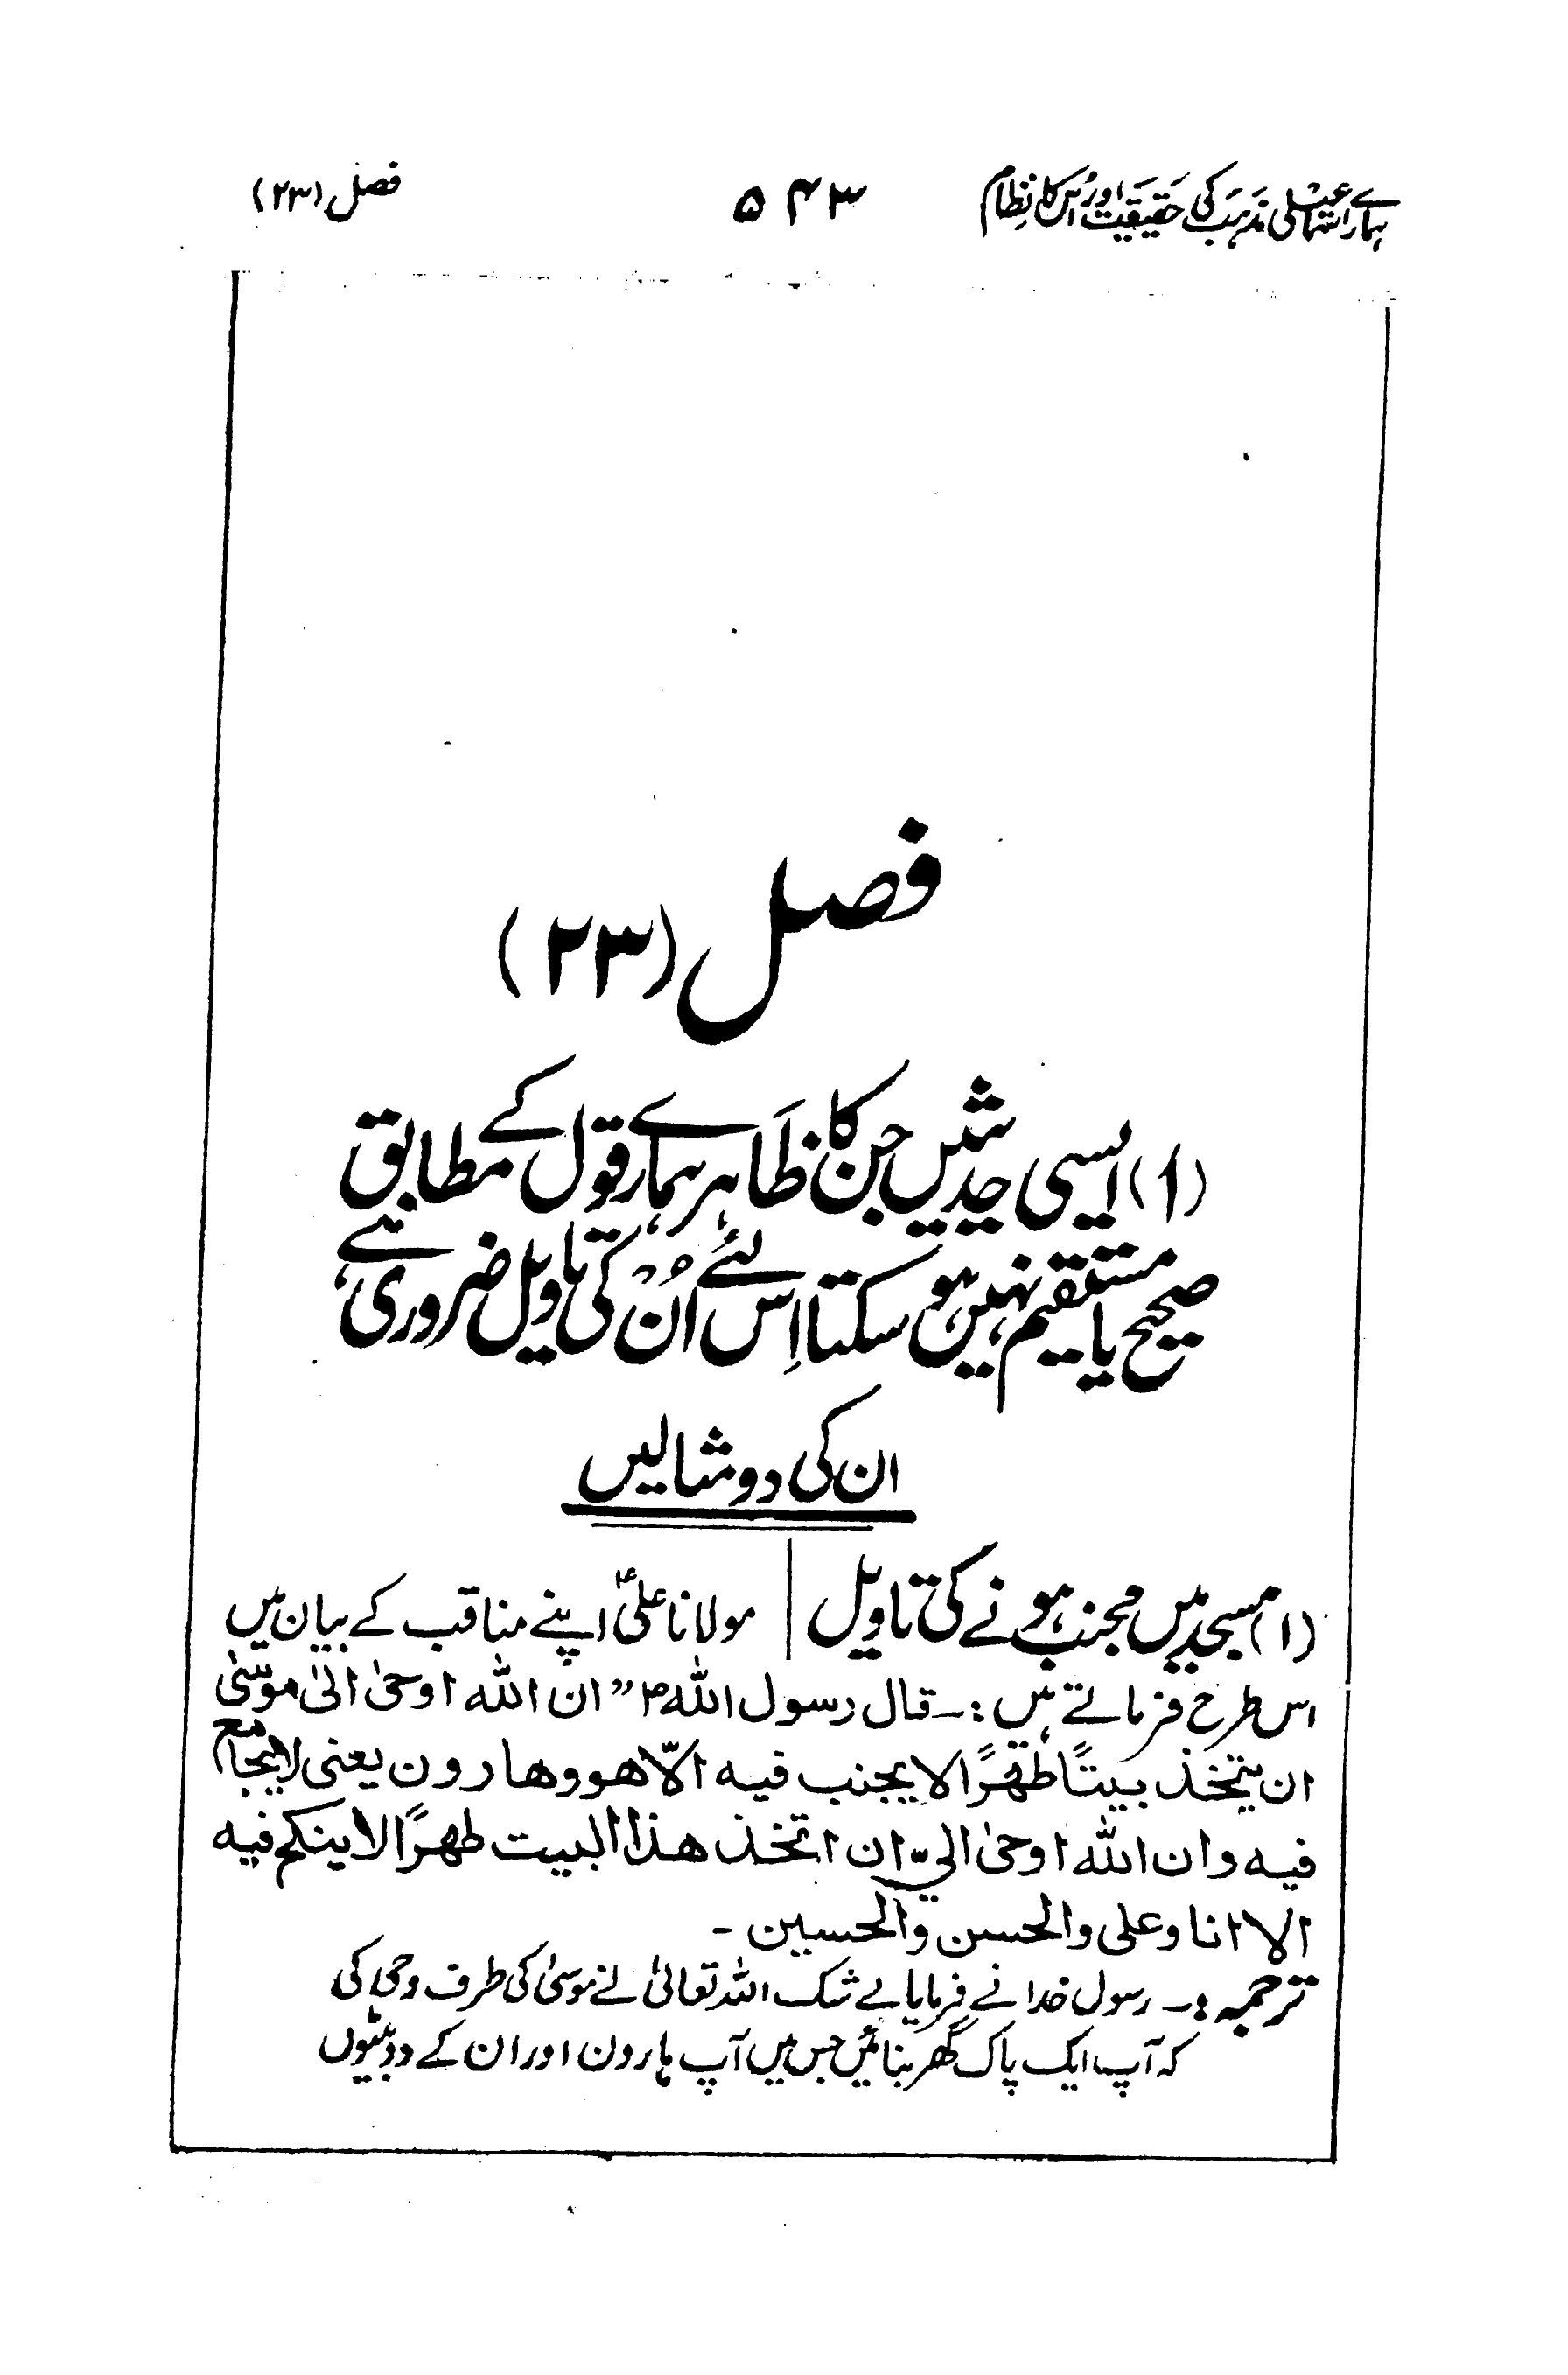 ہمارے اسماعیلی مذہب کی حقیقت اور اس کا نظام ۵۴۳ فصل (۲۳)
فصل (۲۳)
(۱) ایسی حدیثیں جن کا ظاہر ہمارے قول کے مطابق
صحیح یا مستقیم نہیں ہو سکتا اِس لئے اُن کی تاویل ضروری ہے
ان کی دو مثالیں
(۱) مسجد میں مجنب ہونے کی تاویل | مولانا علیؑ اپنے مناقب کے بیان میں
اس طرح فرماتے ہیں :۔ قال رسول اللہ ؐ ”ان اللہ اوحیٰ الیٰ موسیٰ
ان یتخذ بیتًا طھرًا لا یجنب فیہ الّا ھو وھارون یعنی لا یجامع
فیہ وان اللہ اوحیٰ الیّ ان اتخذ ھذا البیت طھرًا لا ینکح فیہ
الا انا وعلی والحسن والحسین ۔
ترجمہ :۔ رسول خدا نے فرمایا بے شک اللہ تعالیٰ نے موسیٰ کی طرف وحی کی
کہ آپ ایک پاک گھر بنائیں جس میں آپ ہارون اور ان کے دو بیٹوں